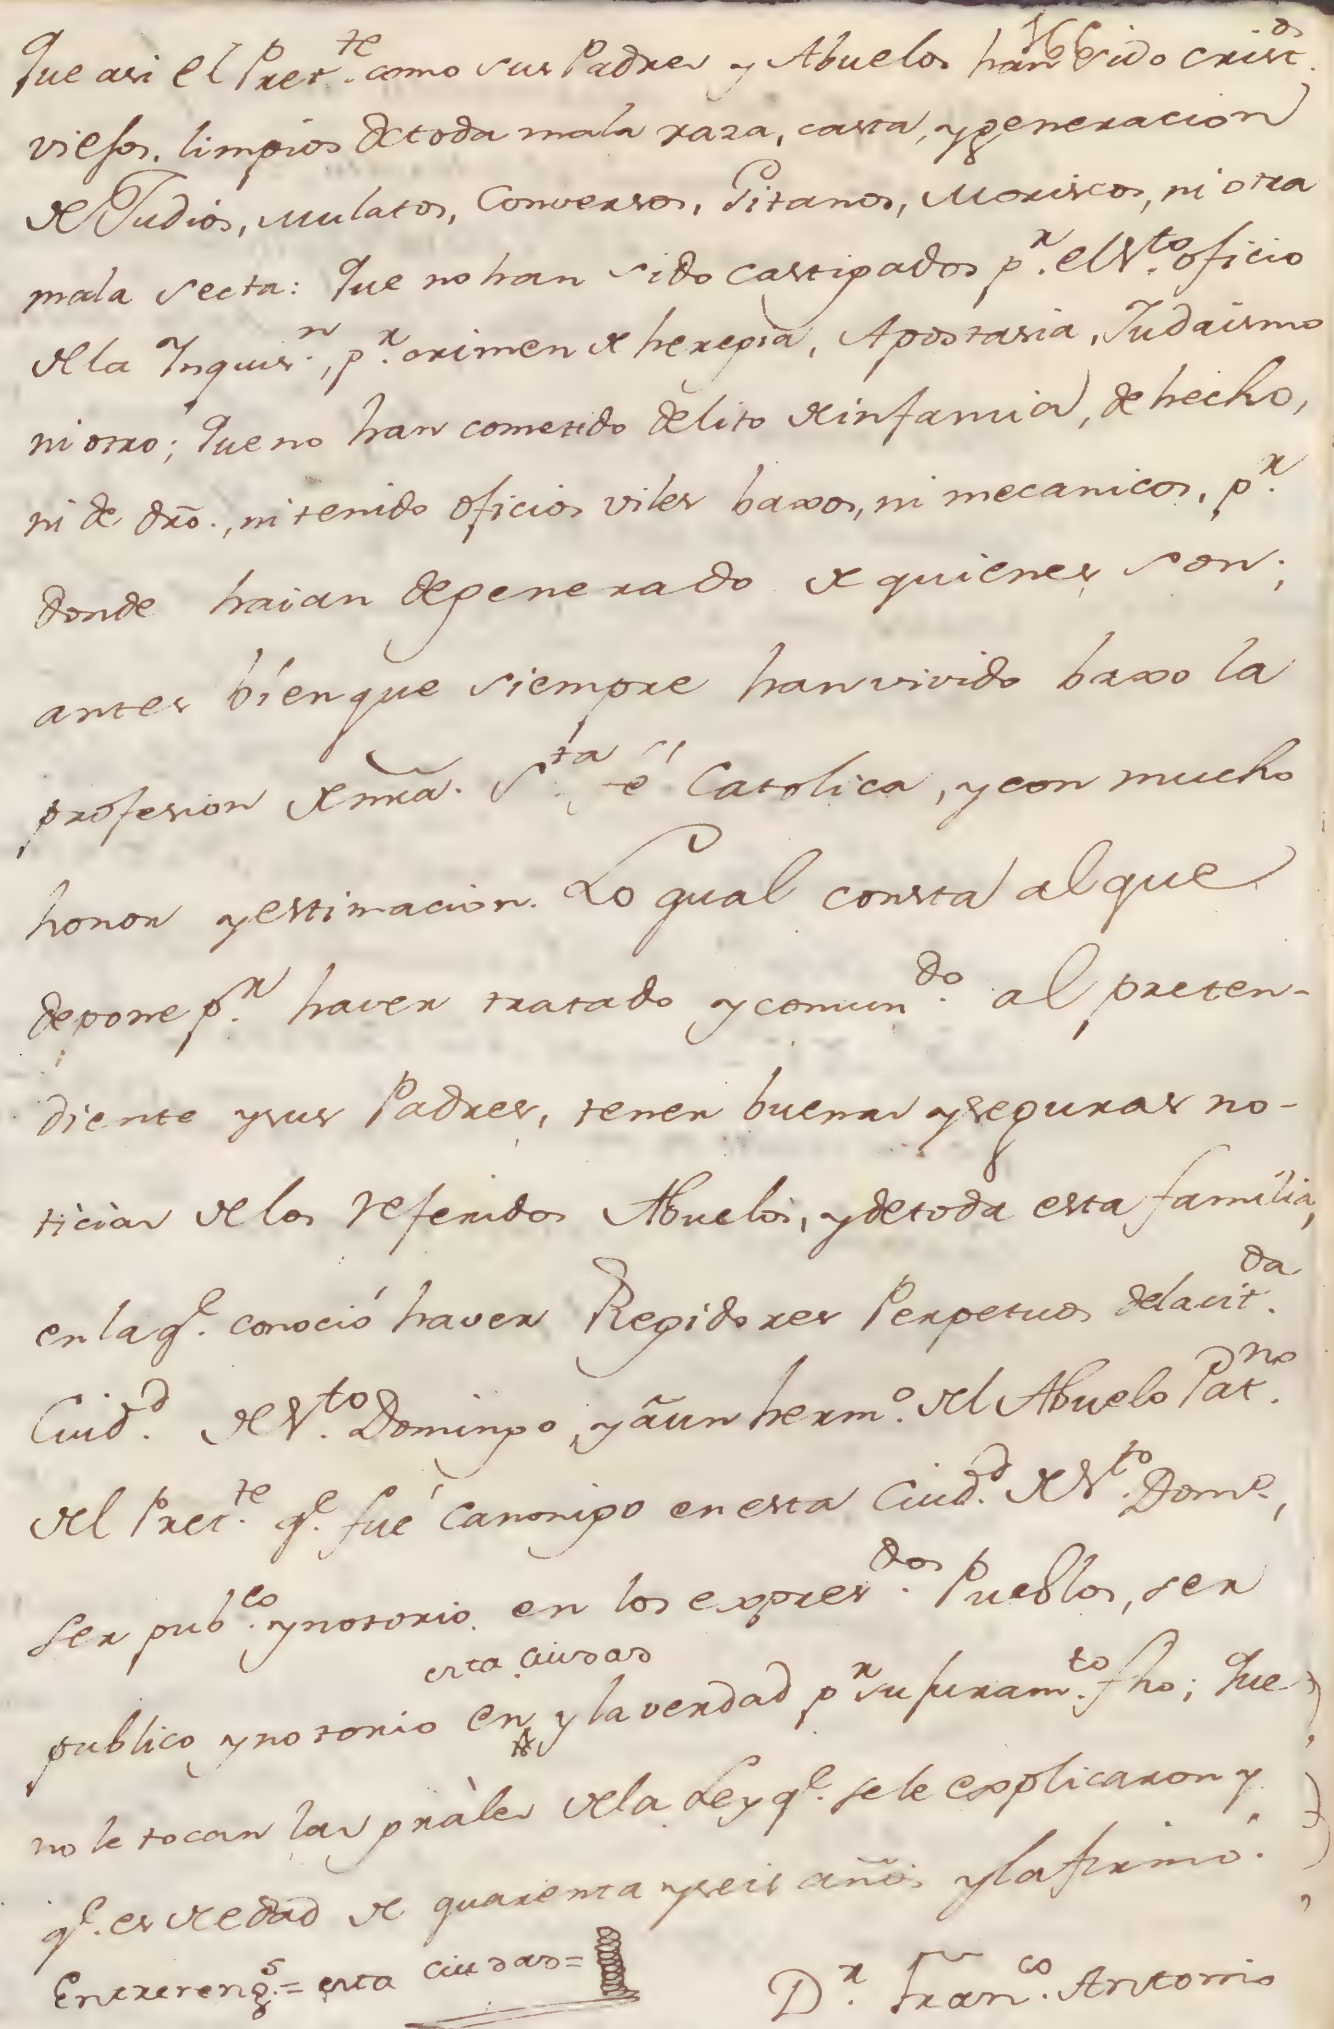 Que asi el Pret.te como sus Padres y Abuelos han sido crist.os
viejos, limpios de toda mala raza, casta, y generacion
de Judios, Mulatos, Conversos, Gitanos, Moriscos, ni otra
mala secta: Que no han sido castigados p.r el S.to oficio
de la Inquis.n, p.r crimen de heregia, Apostasia, Judaismo
ni otro; Que no han cometido delito de infamia, de hecho,
ni de dro., ni tenido oficios viles baxos, ni mecanicos, p.r
donde haian degenerado de quienes son;
antes bien que siempre han vivido baxo la
profesion de nra. S.ta fé Catolica, y con mucho
honor y estimacion. Lo qual consta al que
depone p.r haver tratado y comun.do al preten-
diente y sus Padres, tener buenas y seguras no-
ticias de los referidos Abuelos, y de toda esta familia,
en la q.e conoció haver Regidores Perpetuos de la cit.da
Ciud.d de S.to Domingo, y á un herm.o del Abuelo Pat.no
del Pret.te q.e fué Canonigo en esta Ciud.d de S.to Dom.o,
ser pub.co y notorio en los expres.dos Pueblos, ser
esta ciudad
publico y notorio en y la verdad p.r su juram.to fho; Que
no le tocan las prâles de la Ley q.e se le explicaron y
q.e es de edad de quarenta y seis años y la firmó.
Entrereng.s = esta ciudad =
D.r Fran.co Antonio